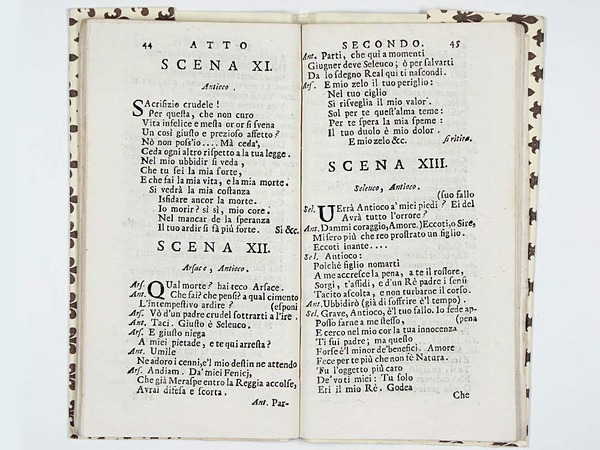 44 ATTO
SCENA XI.
Antioco.
SAcrifizio crudele!
Per questa, che non curo
Vita infelice e mesta or or si svena
Un così giusto e prezioso affetto?
Nò non poss'io.... Mà ceda,
Ceda ogni altro rispetto a la tua legge.
Nel mio ubbidir si veda,
Che tu sei la mia sorte,
E che fai la mia vita, e la mia morte.
Si vedrà la mia costanza
Isfidare ancor la morte.
Io morir? sì sì, mio core.
Nel mancar de la speranza
Il tuo ardir si fà più forte. Sì &c.
SCENA XII.
Arsace, Antioco.
Ars. QUal morte? hai teco Arsace.
Ant. Che fai? che pensi? a qual cimento
L'intempestivo ardire? (esponi
Ars. Vò d'un padre crudel sottrarti a l'ire.
Ant. Taci. Giusto è Seleuco.
Ars. E giusto niega
A miei pietade, e te qui arresta?
Ant. Umile
Ne adoro i cenni, e'l mio destin ne attendo
Ars. Andiam. Da' miei Fenici,
Che già Meraspe entro la Reggia accolse,
Avrai difesa e scorta.
Ant. Par-
SECONDO. 45
Ant. Parti, che quì a momenti
Giugner deve Seleuco; ò per salvarti
Da lo sdegno Real quì ti nascondi.
Ars. E mio zelo il tuo periglio:
Nel tuo ciglio
Si risveglia il mio valor.
Sol per te quest'alma teme:
Per te spera la mia speme:
Il tuo duolo è mio dolor.
E mio zelo &c. si ritira.
SCENA XIII.
Seleuco, Antioco.
(suo fallo
Sel. VErrà Antioco a' miei piedi? E del
Avrà tutto l'orrore?
Ant. Dammi coraggio, Amore.) Eccoti, o Sire,
Misero più che reo prostrato un figlio.
Eccoti inante....
Sel. Antioco:
Poichè figlio nomarti
A me accresce la pena, a te il rossore,
Sorgi, t'assidi, e d'un Rè padre i sensi
Tacito ascolta, e non turbarne il corso.
Ant. Ubbidirò (già di soffrire è'l tempo).
Sel. Grave, Antioco, è'l tuo fallo. Io fede ap-
Posso farne a me stesso, (pena
E cerco nel mio cor la tua innocenza
Ti fui padre; ma questo
Forse è'l minor de' benefici. Amore
Fece per te più che non fè Natura.
Fu l'oggetto più caro
De' voti miei: Tu solo
Eri il mio Rè. Godea
Che